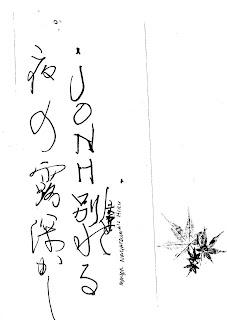 ・JONH別れる
夜の霧深かし